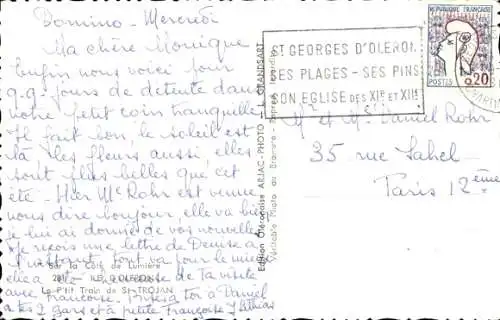 Domino - Mercredi
Ma chère Monique
Enfin nous voici pour
q.q. jours de détente dans
notre petit coin tranquille
Il fait bon, le soleil est
là, les fleurs aussi, elles
sont plus belles que cet
été - Hier Me Rohr est venue
nous dire bonjour, elle va bien
je lui ai donné de vos nouvelles
Je reçois une lettre de Denise à
tout va pour le mieux
elle a été heureuse de ta visite
avec Françoise. à toi à Daniel
à tes 2 gars et à petite Françoise
Sur la Côte de Lumière
ILE D'OLERON
Le P'tit Train de St-TROJAN
Edition Oléronaise ARJAC-PHOTO - L. GRANDSART
Véritable Photo au Bromure - Reprod. interdite
ST GEORGES D'OLERON
SES PLAGES - SES PINS
SON EGLISE DES XIe ET XIIe
REPUBLIQUE FRANÇAISE
POSTES
0,20
Mr et Me Daniel Rohr
35 rue Sahel
Paris 12ème